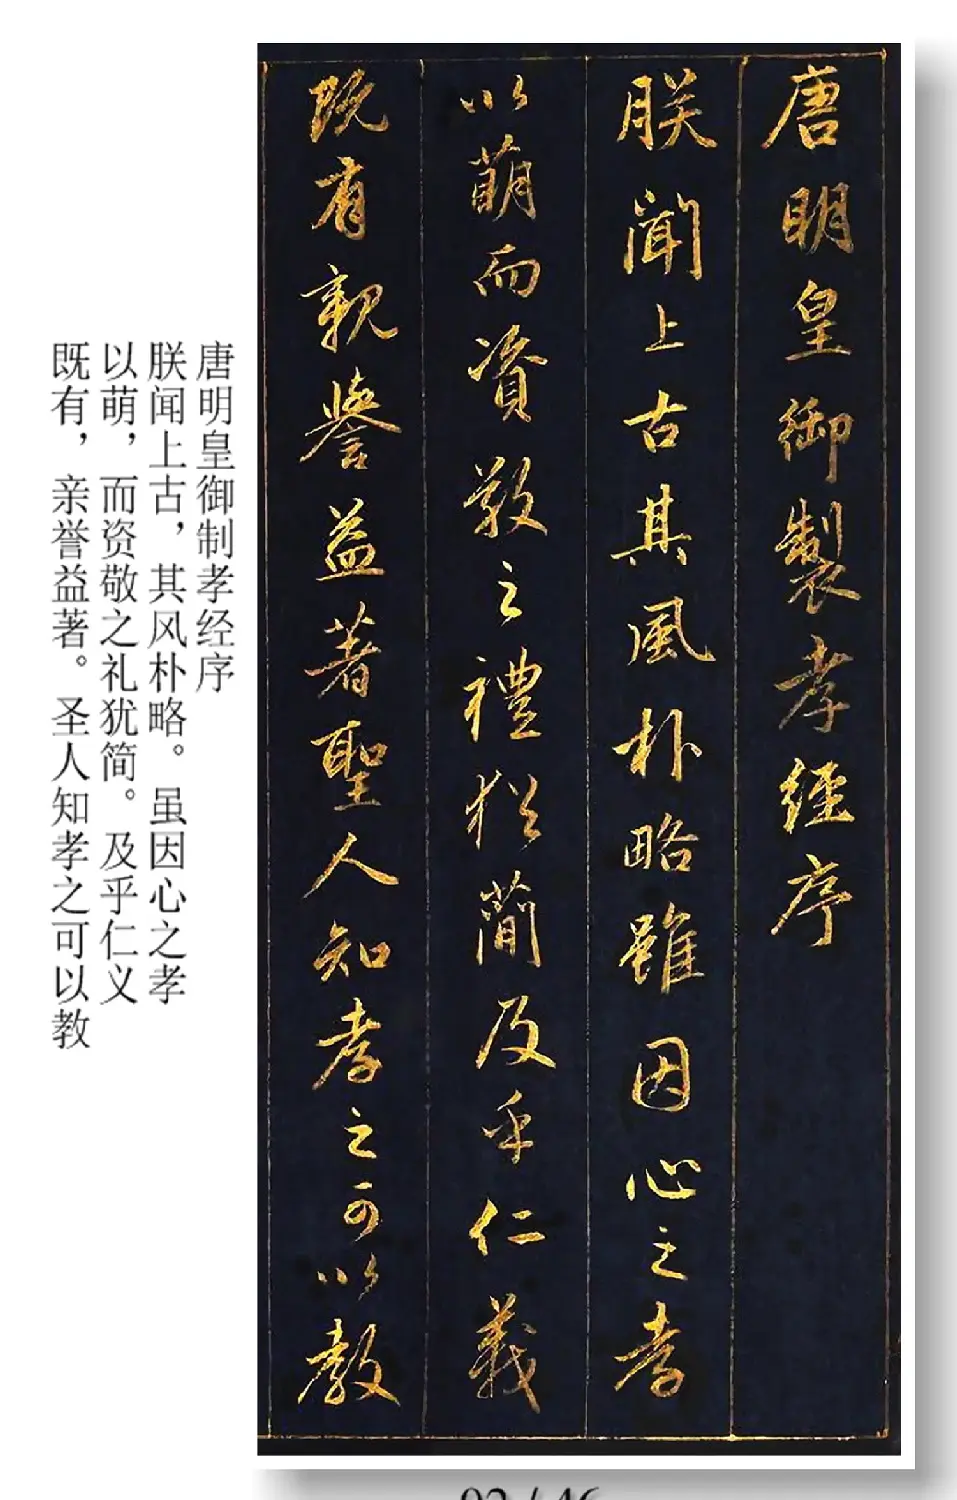 唐明皇御製孝經序
朕聞上古其風朴略雖因心之孝
以萌而資敬之禮猶簡及乎仁義
既有親譽益著聖人知孝之可以教
唐明皇御制孝经序
朕闻上古，其风朴略。虽因心之孝
以萌，而资敬之礼犹简。及乎仁义
既有，亲誉益著。圣人知孝之可以教